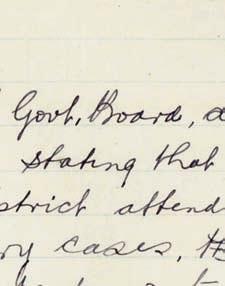 Govt. Board, a
stating that
strict attend
ry cases, th